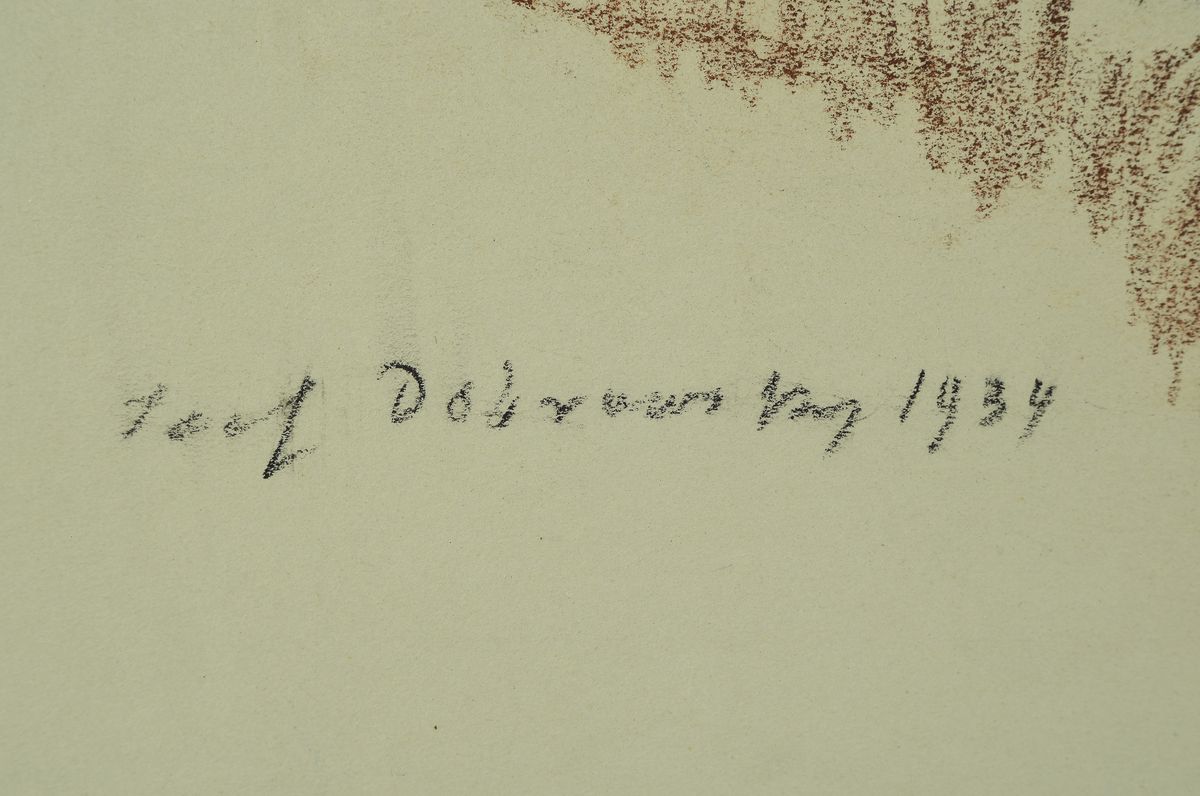 Josef Dobrowsky 1934